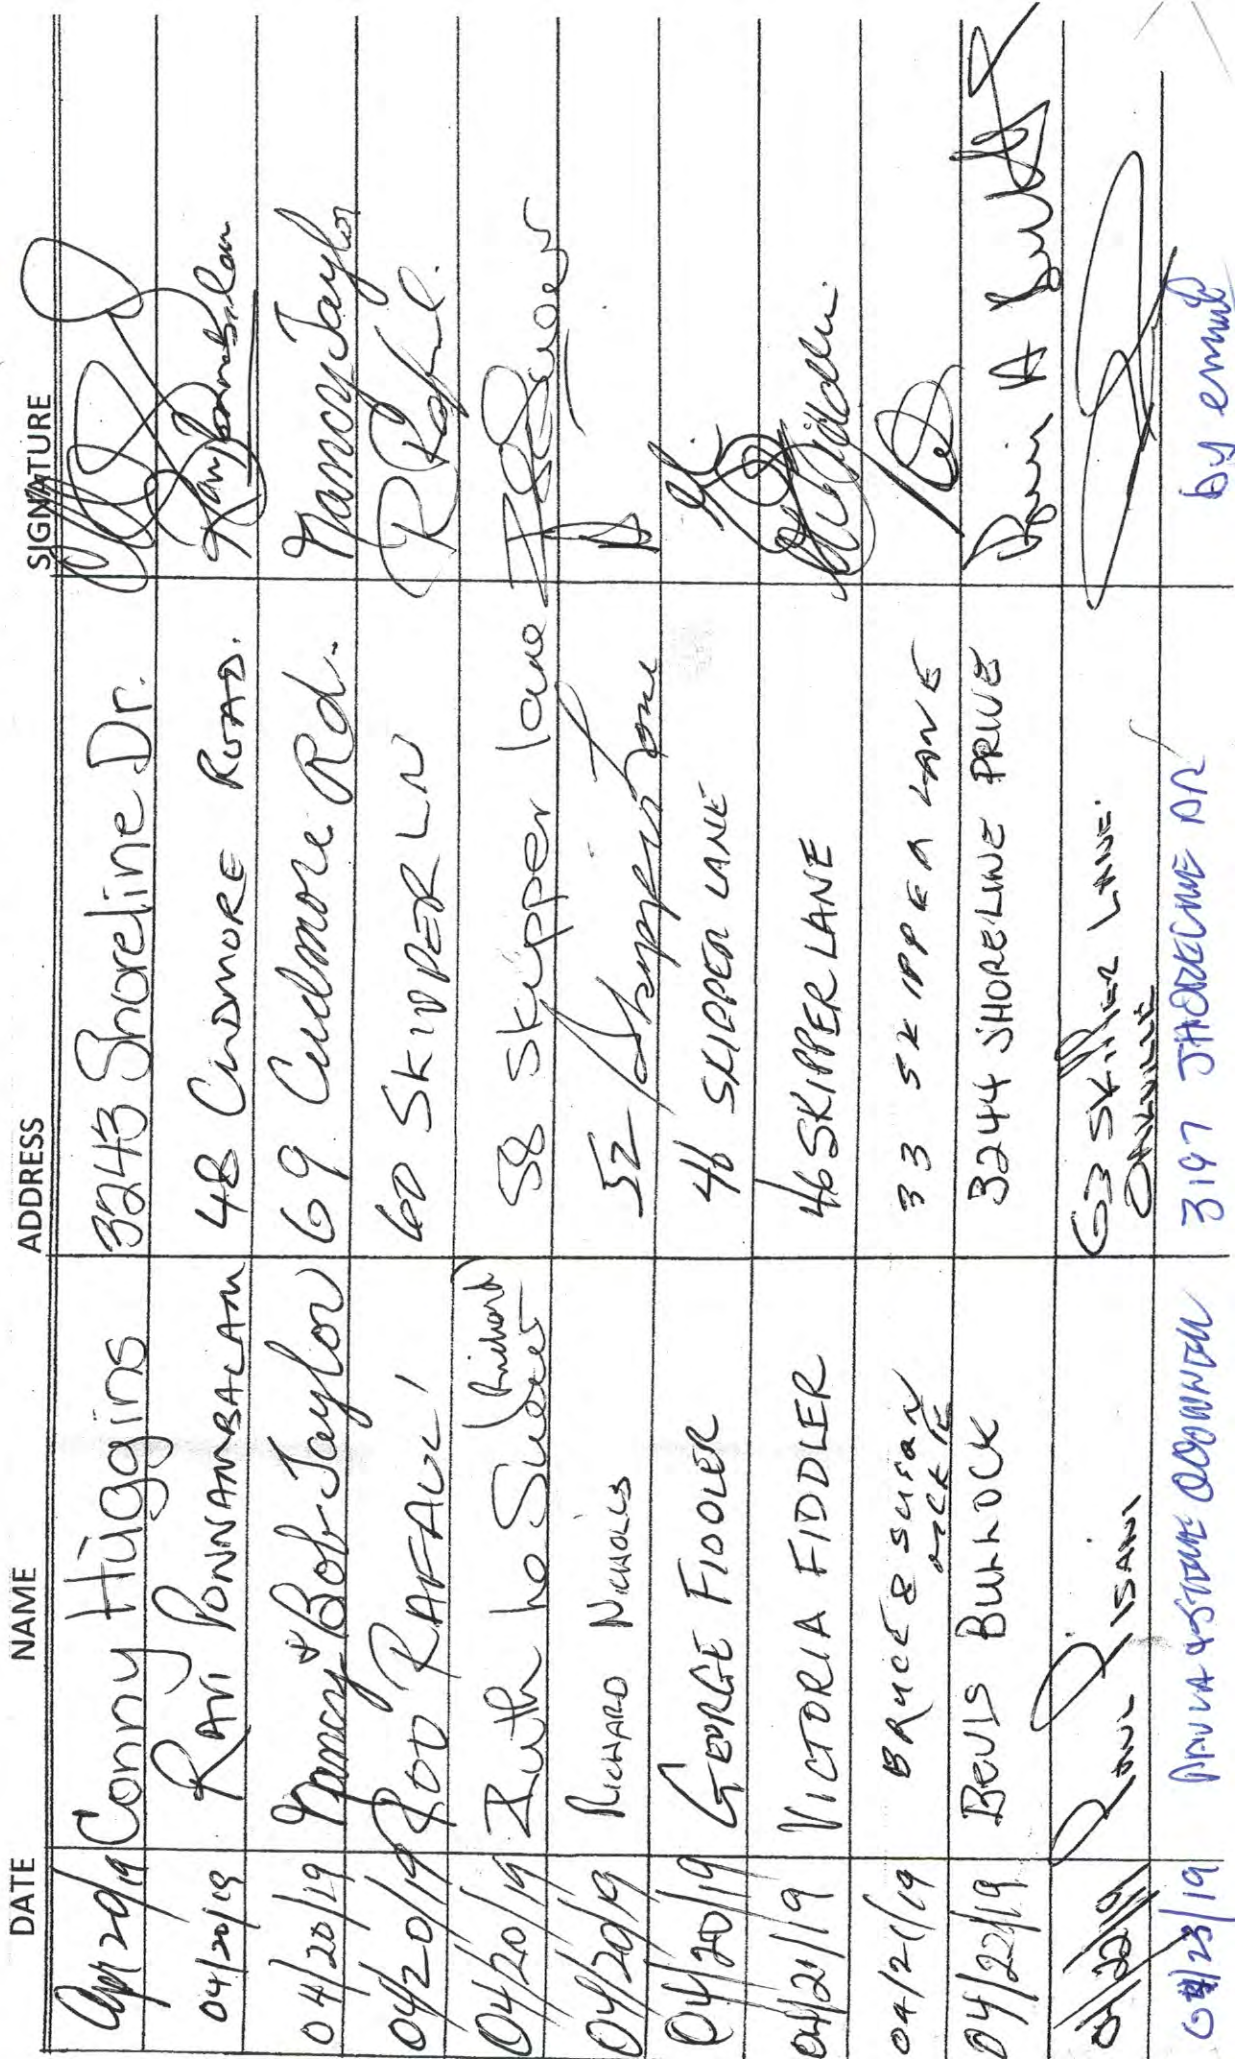 DATE NAME ADDRESS SIGNATURE
Apr 20/19 Conny Huggins 3243 Shoreline Dr.
04/20/19 RAVI PONNAMBALAM 48 CUDMORE ROAD.
04/20/19 Nancy & Bob Taylor 69 Cudmore Rd. Nancy Taylor
04/20/19 ROD RAFAUL 60 SKIPPER LN
04/20/19 Ruth Richard 58 Skipper lane
04/20/19 RICHARD NICHOLLS 52
04/20/19 GEORGE FIDDLER 46 SKIPPER LANE
04/21/19 VICTORIA FIDDLER 46 SKIPPER LANE
04/21/19 BRUCE & SUSAN 33 SKIPPER LANE
04/22/19 BEVIS BULLOCK 3244 SHORELINE DRIVE
04/22/19 PISANI 63 SKIPPER LANE
OAKVILLE
04/23/19 3197 SHORELINE DR by email